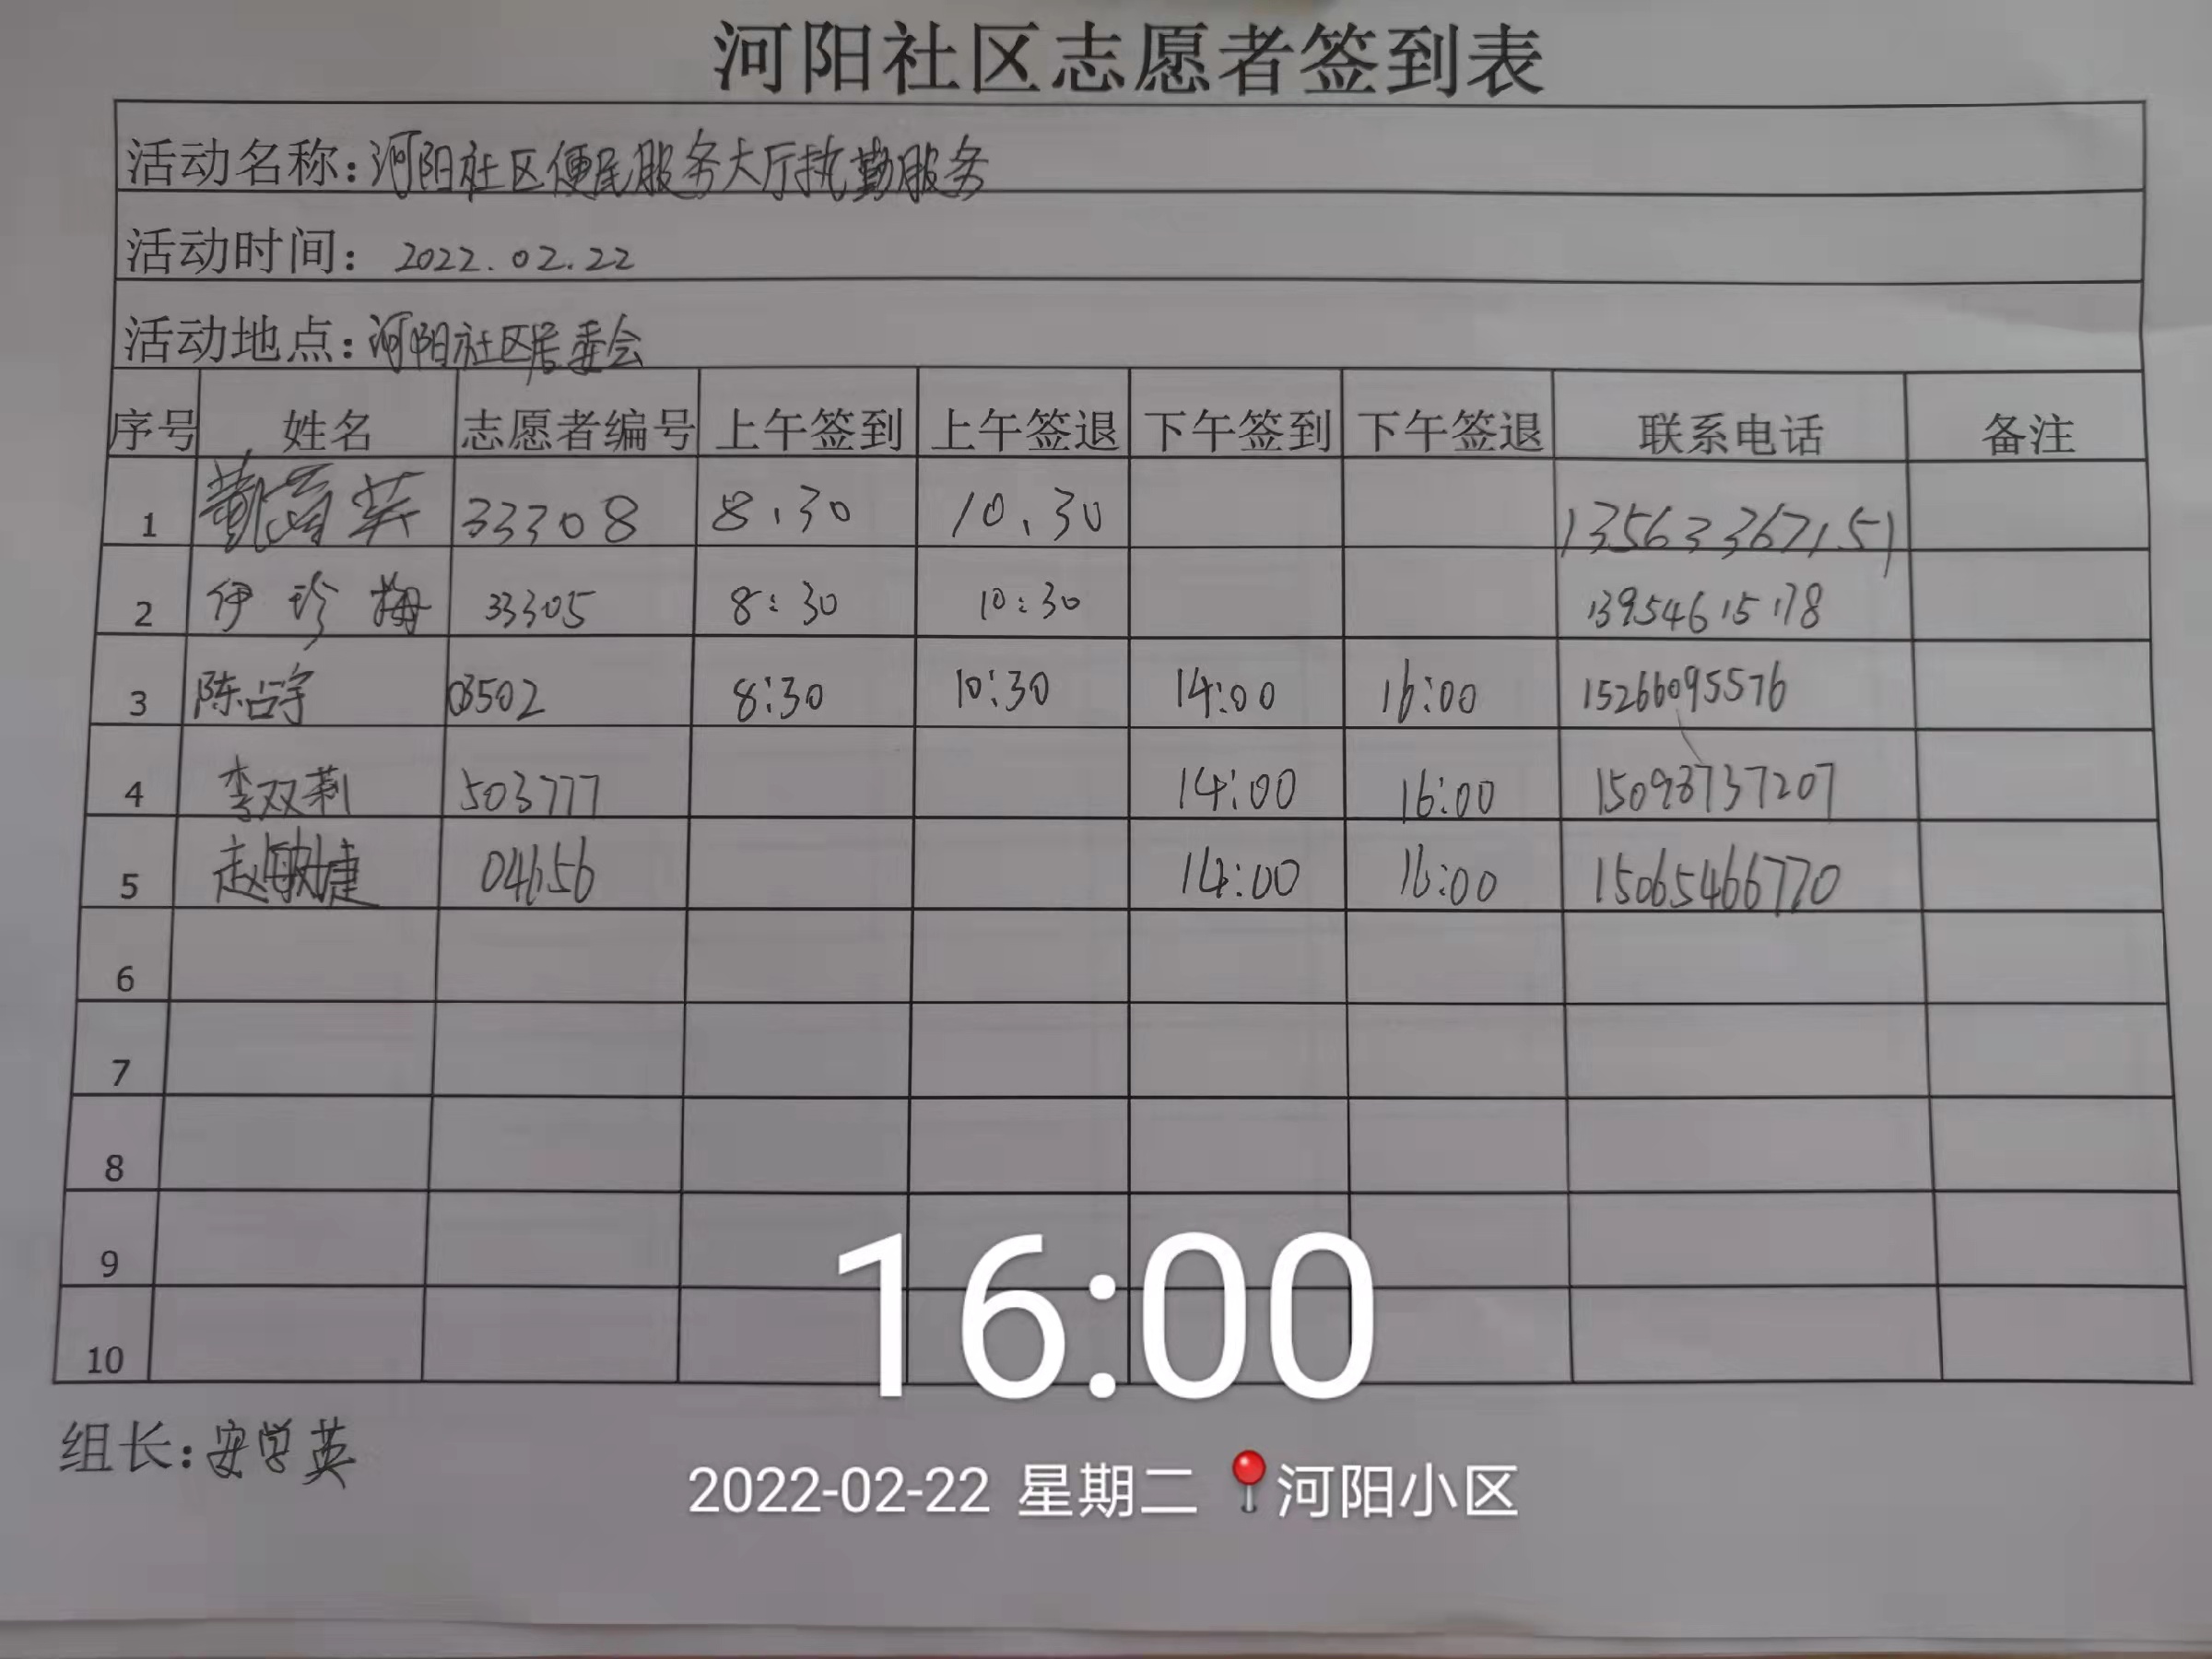 河阳社区志愿者签到表
活动名称：河阳社区便民服务大厅执勤服务
活动时间： 2022.02.22
活动地点：河阳社区居委会
序号 姓名 志愿者编号 上午签到 上午签退 下午签到 下午签退 联系电话 备注
1 英 33308 8.30 10.30 13563367151
2 伊珍梅 33305 8:30 10:30 13954615178
3 陈占宇 03502 8:30 10:30 14:00 16:00 15266095576
4 李双莉 503777 14:00 16:00 15098737207
5 赵敏捷 04656 14:00 16:00 15065466770
6
7
8
9
10
16:00
组长：安学英
2022-02-22 星期二 河阳小区